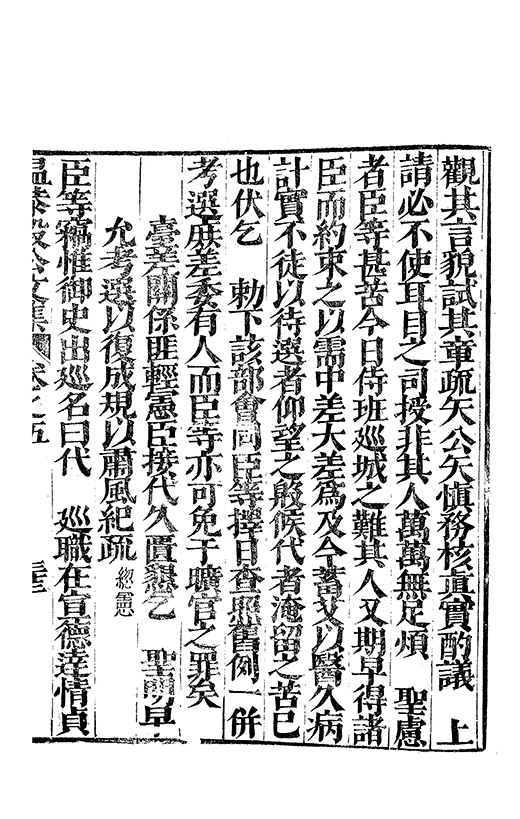 觀其言貌試其章疏矢公矢慎務核眞實酌議　上
請必不使耳目之司授非其人萬萬無足煩　聖慮
者臣等甚苦今日侍班巡城之難其人又期早得諸
臣而約束之以需中差大差爲及今蓄艾以醫久病
計實不徒以待選者仰望之殷候代者淹留之苦已
也伏乞　勅下該部會同臣等擇日查照舊例一併
考選庶差委有人而臣等亦可免于曠官之罪矣
臺差關係匪輕憲臣接代久匱懇乞　聖明早
允考選以復成規以肅風紀疏 總憲
臣等竊惟御史出巡名曰代　巡職在宣德達情貞
溫恭毅公文集 卷之五